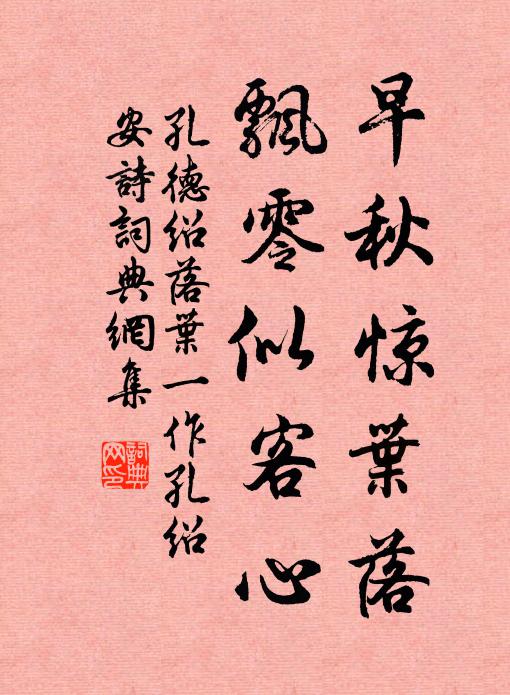 早秋惊葉落
飄零似客心
孔德绍落葉一作孔绍
安詩詞典網集
詞典网印